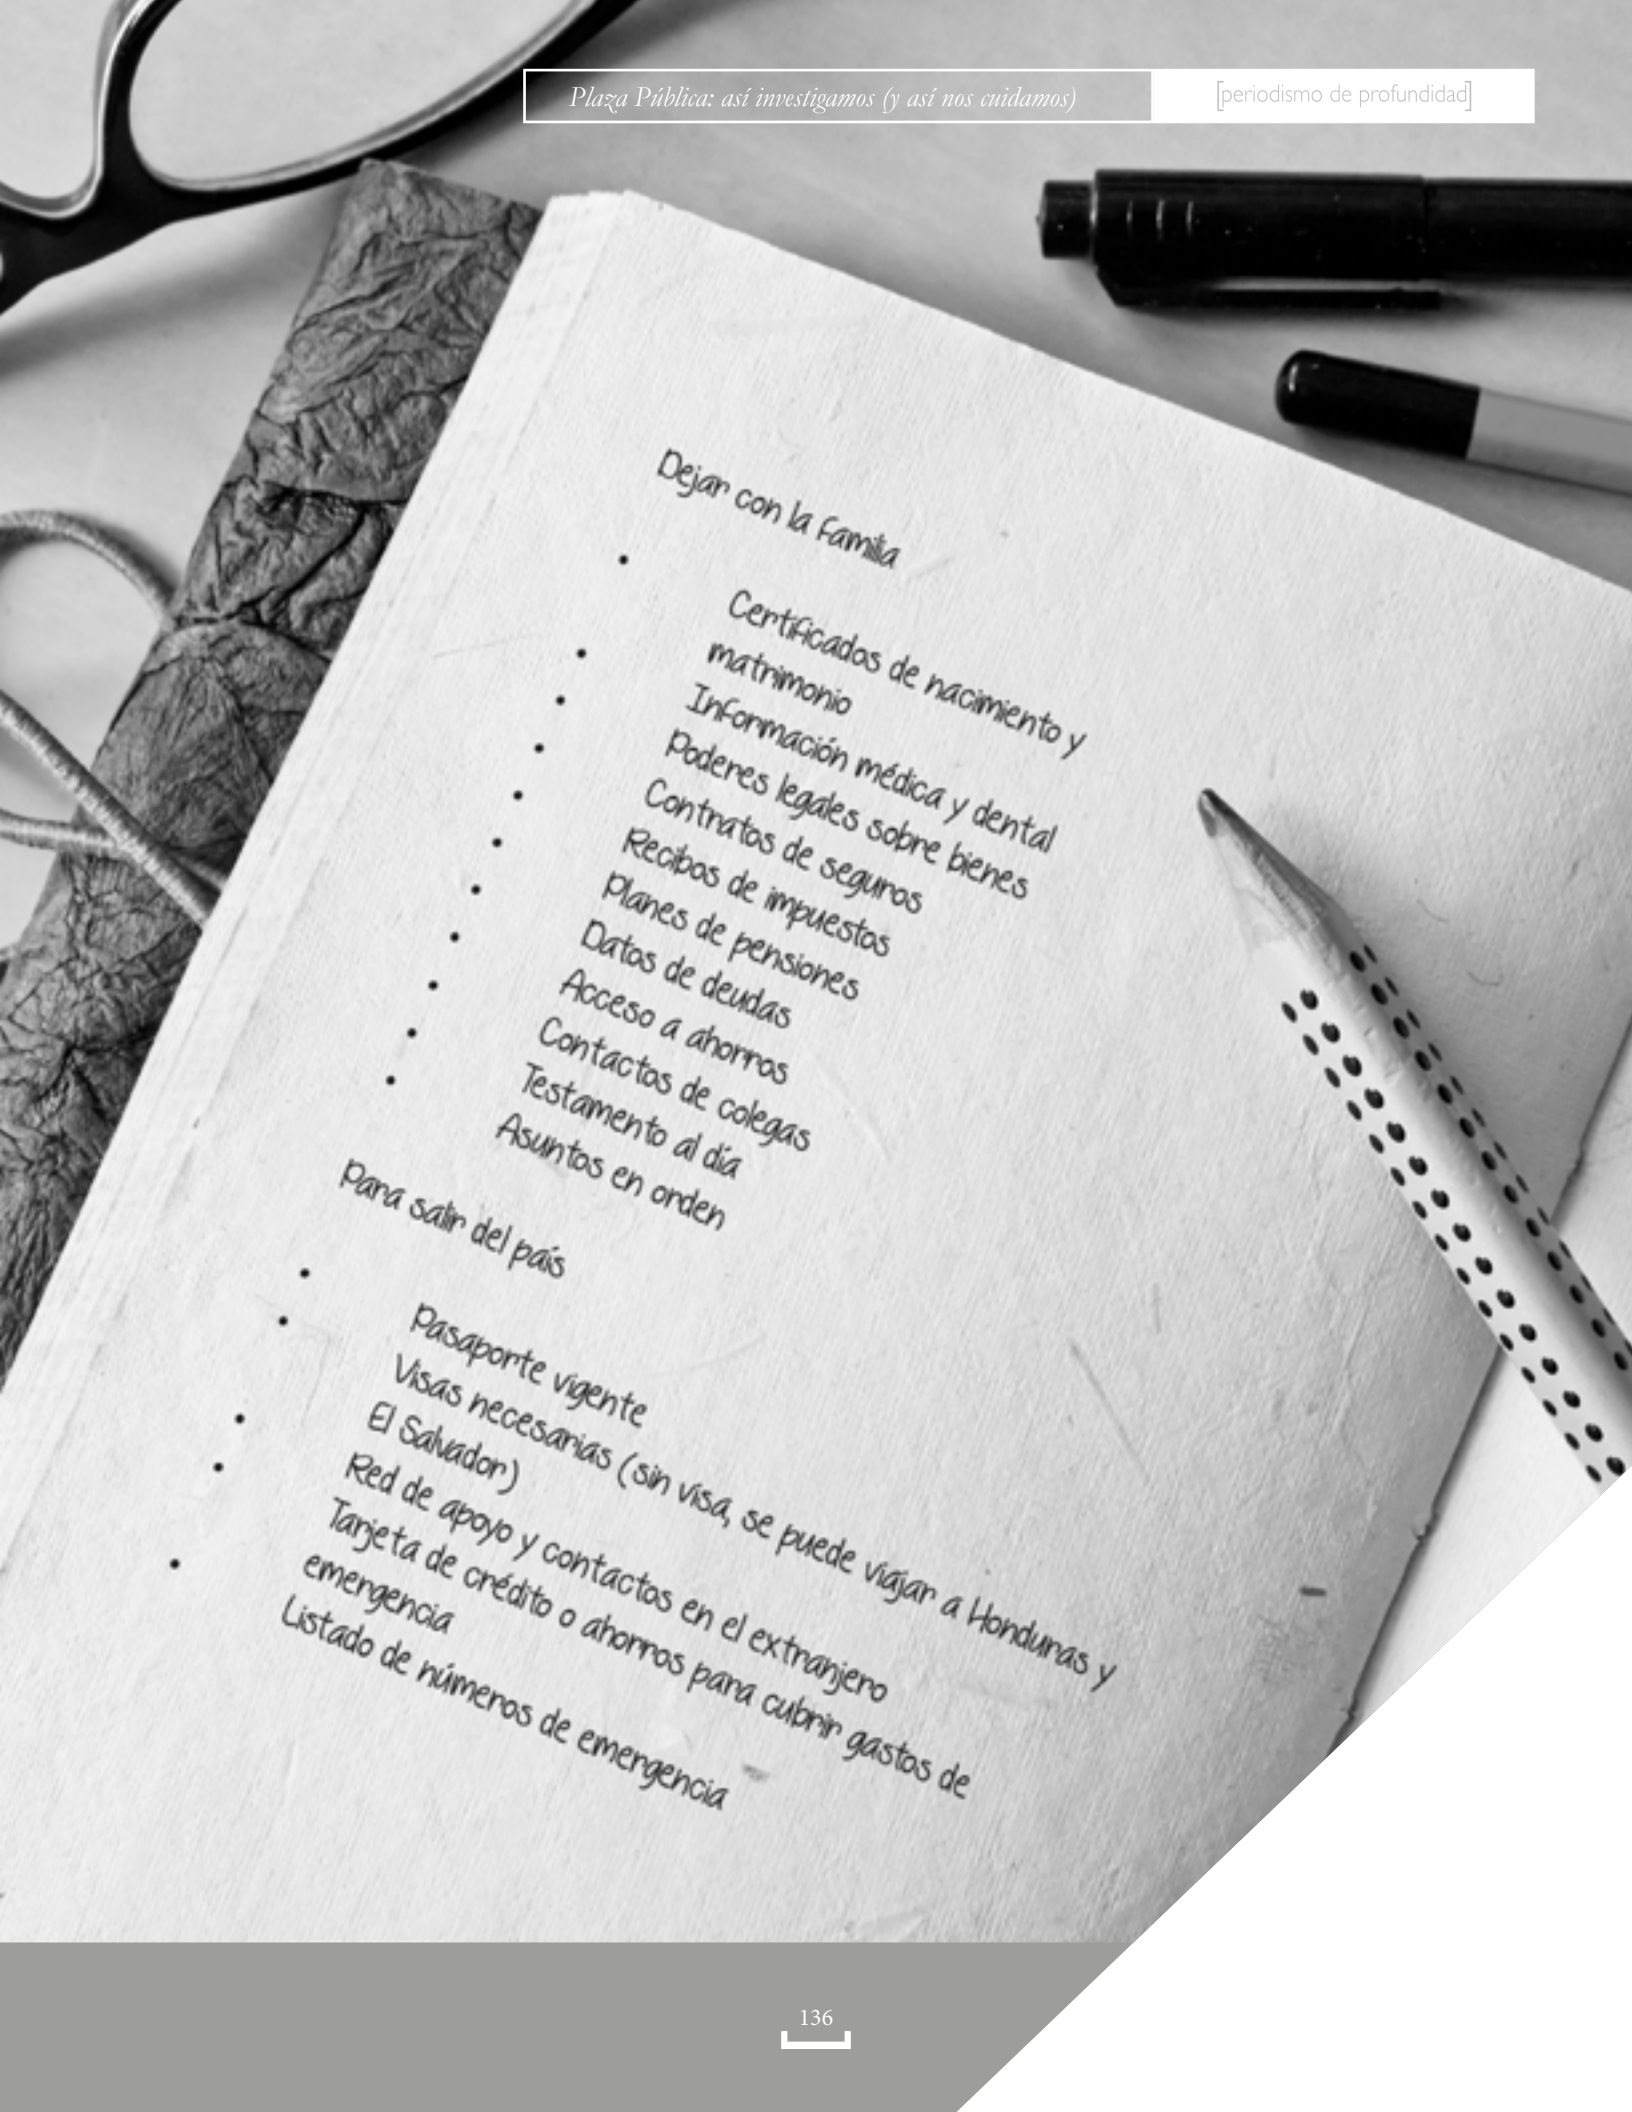 Plaza Pública: así investigamos (y así nos cuidamos)
[periodismo de profundidad]
Dejar con la familia
• Certificados de nacimiento y
matrimonio
• Información médica y dental
• Poderes legales sobre bienes
• Contratos de seguros
• Recibos de impuestos
• Planes de pensiones
• Datos de deudas
• Acceso a ahorros
• Contactos de colegas
• Testamento al día
• Asuntos en orden
Para salir del país
• Pasaporte vigente
• Visas necesarias (sin visa, se puede viajar a Honduras y
El Salvador)
• Red de apoyo y contactos en el extranjero
• Tarjeta de crédito o ahorros para cubrir gastos de
emergencia
• Listado de números de emergencia
136